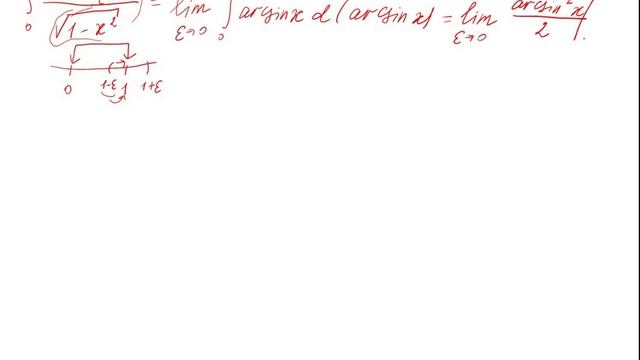 ∫₀ √(1-x²) = lim ε→0 ∫₀ arcsinx d(arcsinx) = lim ε→0 arcsin²x/2 |
0 1-ε 1 1+ε